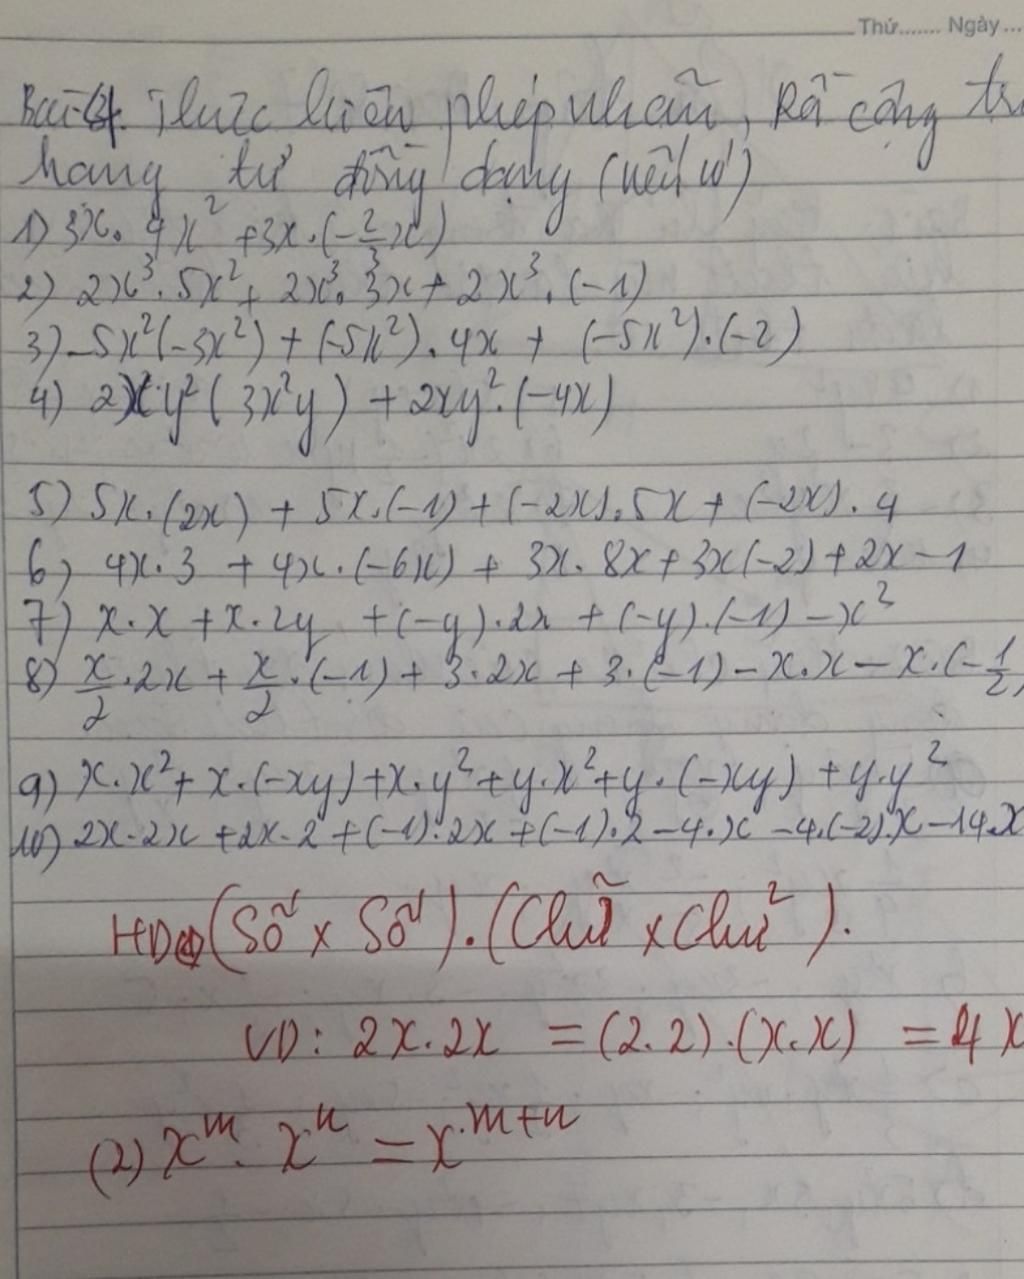 Thứ....... Ngày...
Bài 4. Thực hiện phép nhân, Rồi cộng
hạng tử đồng dạng (nếu có)
1) 3x. 4x² + 3x.(-2/3x)
2) 2x³. 5x² + 2x³. 3x + 2x³. (-1)
3) -5x²(-3x²) + (-5x²). 4x + (-5x²).(-2)
4) 2xy²(3x²y) + 2xy².(-4x)
5) 5x.(2x) + 5x.(-1) + (-2x).5x + (-2x). 4
6) 4x.3 + 4x.(-6x) + 3x. 8x + 3x(-2) + 2x - 1
7) x.x + x.2y + (-y).2x + (-y).(-1) - x²
8) x/2.2x + x/2.(-1) + 3.2x + 3.(-1) - x.x - x.(-1/2)
9) x.x² + x.(-xy) + x.y² + y.x² + y.(-xy) + y.y²
10) 2x.2x + 2x.2 + (-1).2x + (-1).2 - 4.x - 4.(-2).x - 14.x
HD (Số x Số).(Chữ x Chữ).
VD: 2x.2x = (2.2).(x.x) = 4x
(2) xᵐ. xⁿ = xᵐ⁺ⁿ